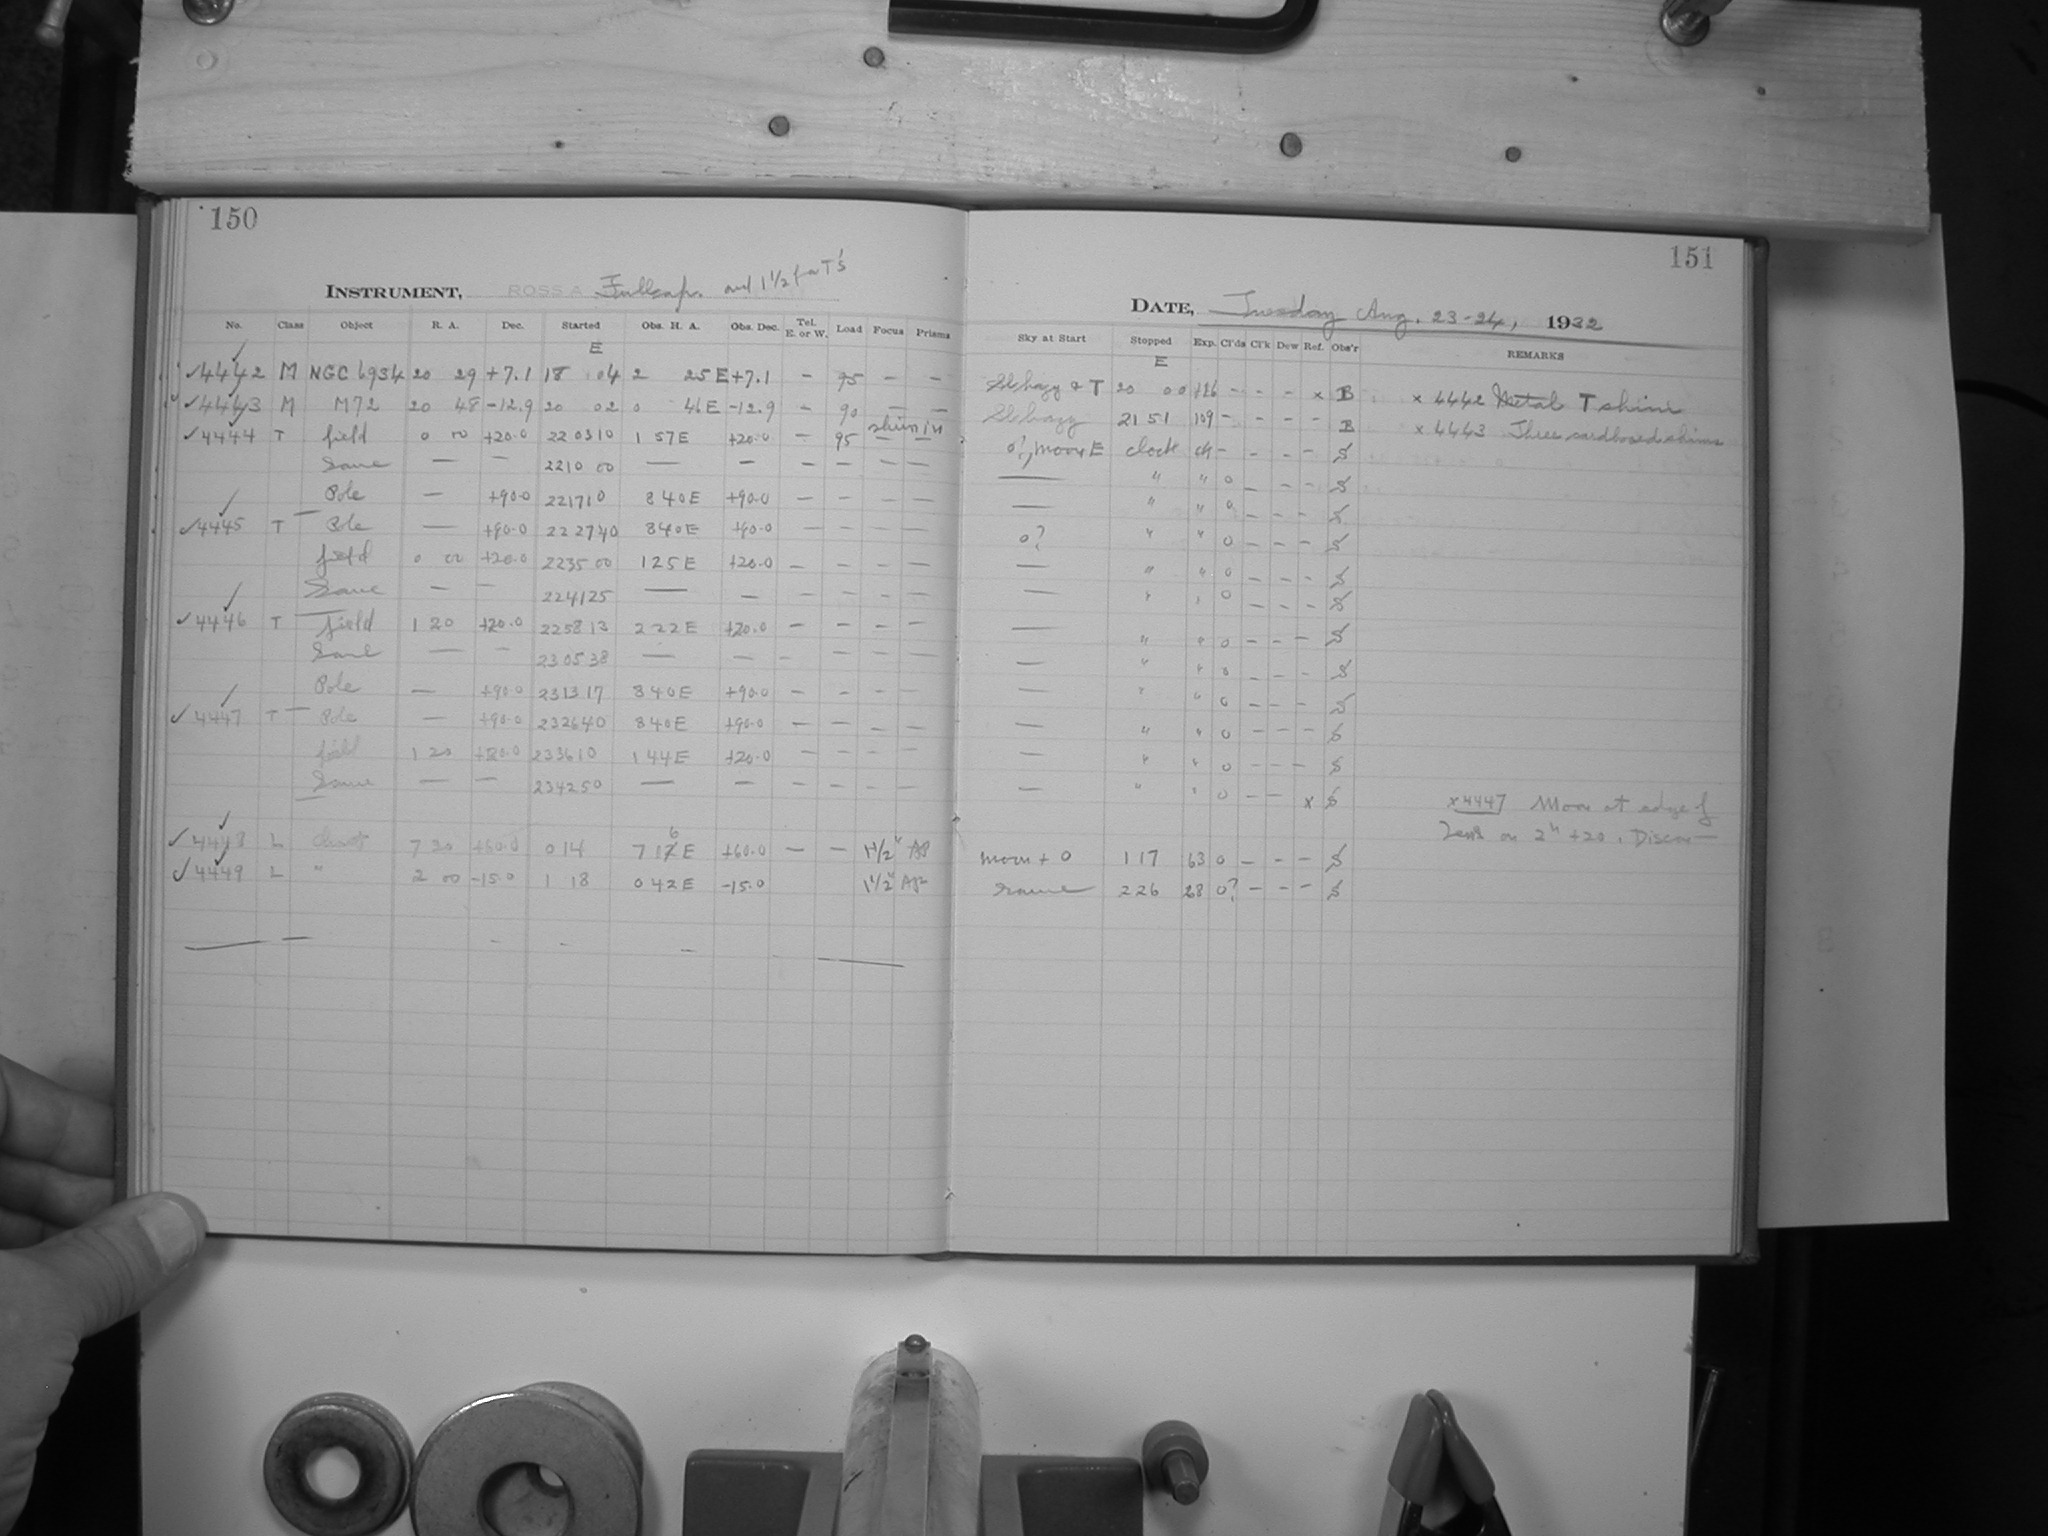 150
INSTRUMENT, ROSS A Full cap. and 1 1/2 for T's
No. Class Object R. A. Dec. Started Obs. H. A. Obs. Dec. Tel. E. or W. Load Focus Prisms
E
✓4442 M NGC 6934 20 29 +7.1 18 04 2 25 E +7.1 — 95 — —
✓4443 M M72 20 48 -12.9 20 02 0 46 E -12.9 — 90 — —
shim in
✓4444 T field 0 00 +20.0 22 03 10 1 57 E +20.0 — 95 — —
Same — — 22 10 00 — — — — — —
Pole — +90.0 22 17 10 8 40 E +90.0 — — — —
✓4445 T Pole — +90.0 22 27 40 8 40 E +90.0 — — — —
field 0 00 +20.0 22 35 00 1 25 E +20.0 — — — —
Same — — 22 41 25 — — — — — —
✓4446 T field 1 20 +20.0 22 58 13 2 22 E +20.0 — — — —
Same — — 23 05 38 — — — — — —
Pole — +90.0 23 13 17 8 40 E +90.0 — — — —
✓4447 T Pole — +90.0 23 26 40 8 40 E +90.0 — — — —
field 1 20 +20.0 23 36 10 1 44 E +20.0 — — — —
Same — — 23 42 50 — — — — — —
✓4448 L 7 20 +60.0 0 14 7 16 E +60.0 — — 1 1/2" Ap
✓4449 L " 2 00 -15.0 1 18 0 42 E -15.0 1 1/2" Ap
151
DATE, Tuesday Aug. 23-24, 1932
Sky at Start Stopped Exp. Cl'ds Cl'k Dew Ref. Obs'r REMARKS
E
Sl hazy & T 20 00 116 — — — x B x 4442 Metal T shim
Sl hazy 21 51 109 — — — — B x 4443 Three cardboard shims
0?, moon E clock — — — — S
— " " 0 — — — S
— " " 0 — — — S
0? " " 0 — — — S
— " " 0 — — — S
— " " 0 — — — S
— " " 0 — — — S
— " " 0 — — — S
— " " 0 — — — S
— " " 0 — — — S
— " " 0 — — — S
— " " 0 — — x S x4447 Moon at edge of
lens on 2h +20. Discon—
Moon + 0 1 17 63 0 — — — S
same 2 26 68 0? — — — S